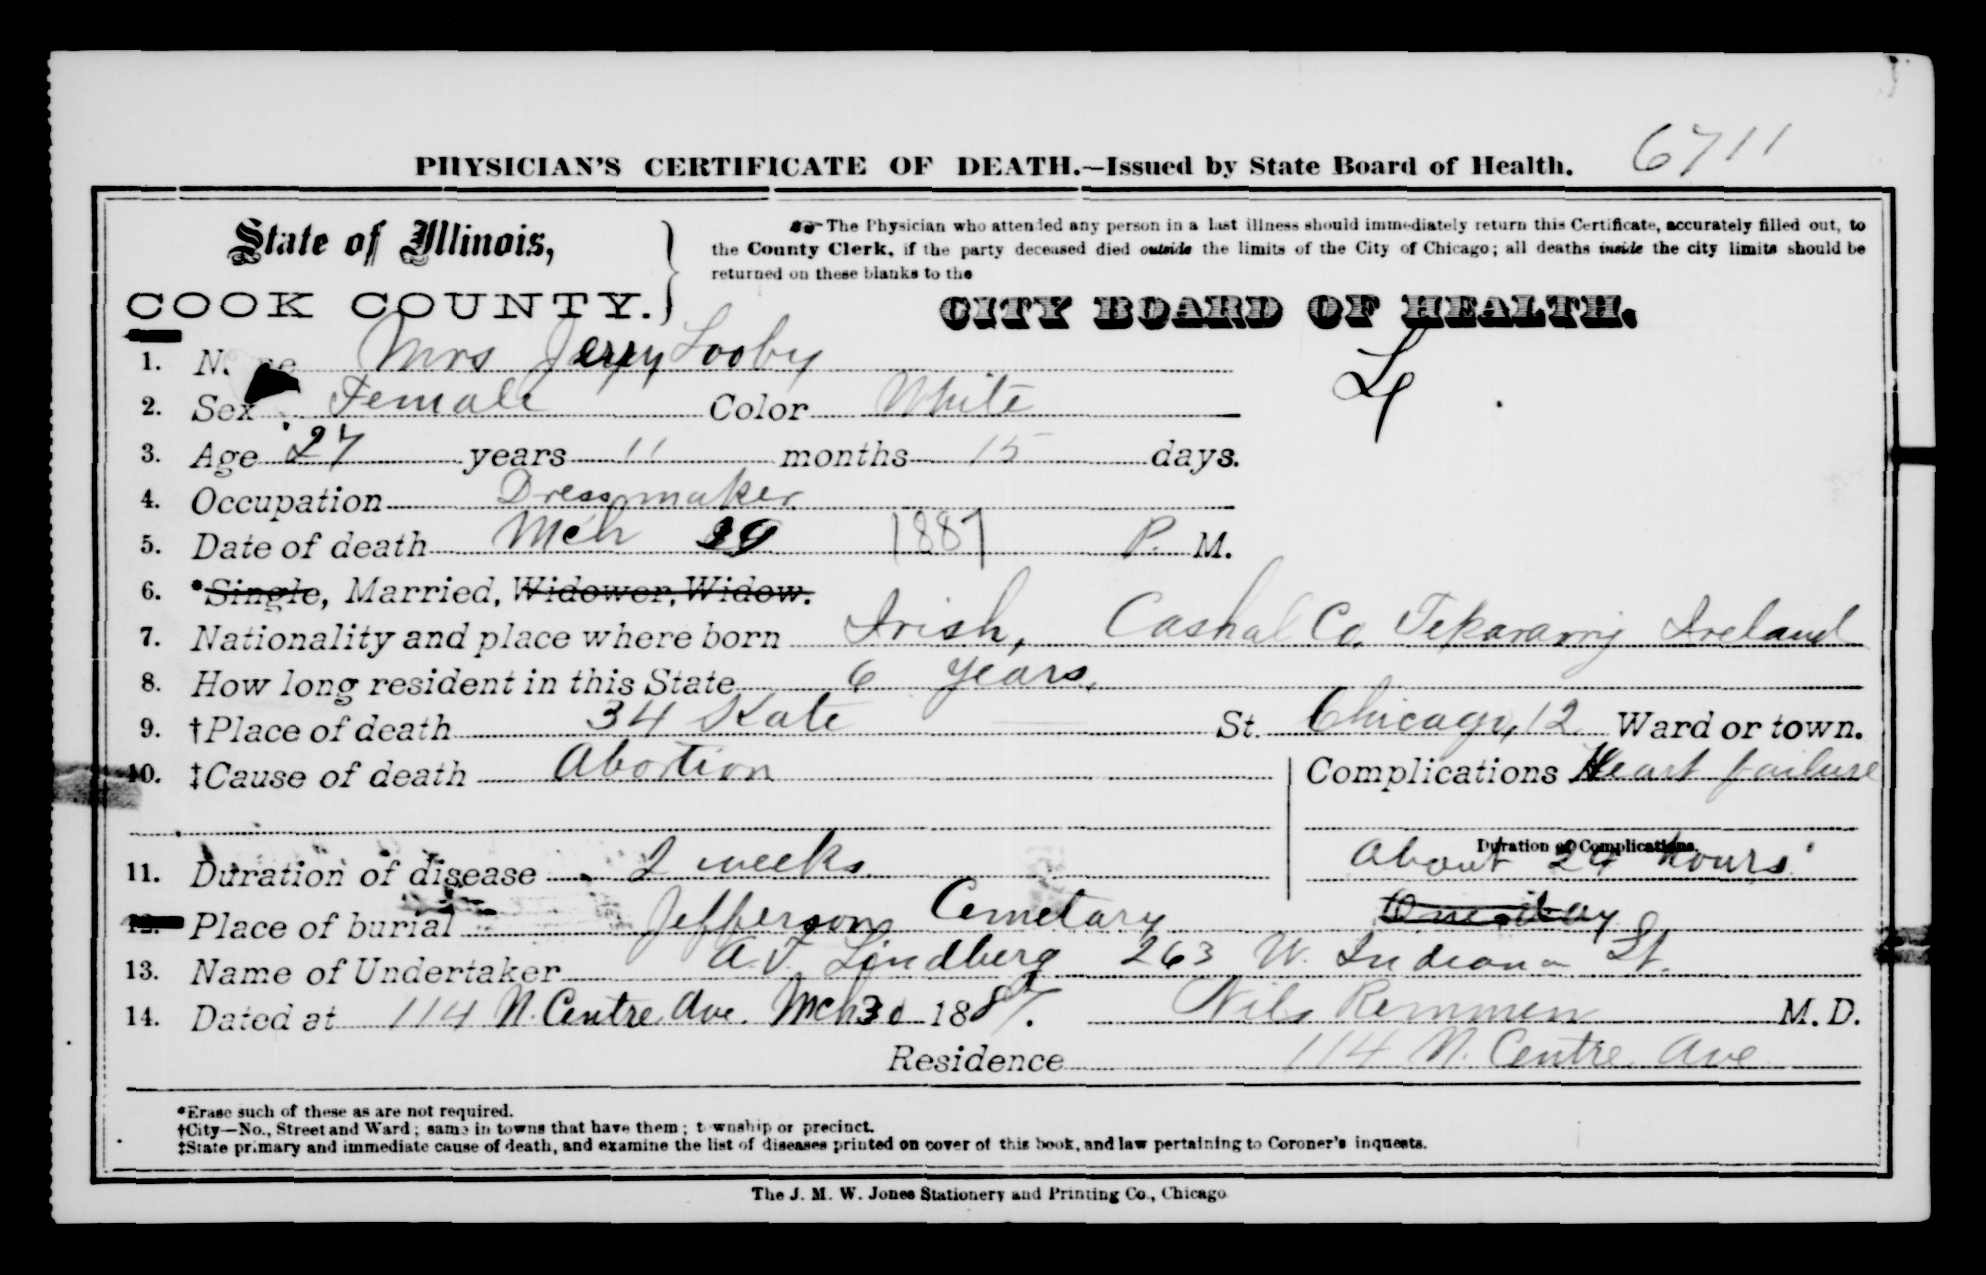 6711
PHYSICIAN'S CERTIFICATE OF DEATH.—Issued by State Board of Health.
State of Illinois,
COOK COUNTY.
The Physician who attended any person in a last illness should immediately return this Certificate, accurately filled out, to
the County Clerk, if the party deceased died outside the limits of the City of Chicago; all deaths inside the city limits should be
returned on these blanks to the
CITY BOARD OF HEALTH.
1. Name Mrs Jerry Looby
2. Sex Female Color White
3. Age 27 years 11 months 15 days.
4. Occupation Dressmaker
5. Date of death Mch 30 1887 P. M.
6. *Single, Married, Widower, Widow.
7. Nationality and place where born Irish, Cashal Co. Tekararry Ireland
8. How long resident in this State 6 years.
9. †Place of death 34 Kate St. Chicago, 12 Ward or town.
10. ‡Cause of death Abortion Complications Heart failure
Duration of Complications.
11. Duration of disease 2 weeks About 24 hours
12. Place of burial Jefferson Cemetary One day
13. Name of Undertaker A. F. Lindberg 263 W. Indiana St.
14. Dated at 114 N. Centre Ave. Mch 30 1887. Nils Remmen M. D.
Residence 114 N. Centre Ave
*Erase such of these as are not required.
†City—No., Street and Ward; same in towns that have them; township or precinct.
‡State primary and immediate cause of death, and examine the list of diseases printed on cover of this book, and law pertaining to Coroner's inquests.
The J. M. W. Jones Stationery and Printing Co., Chicago